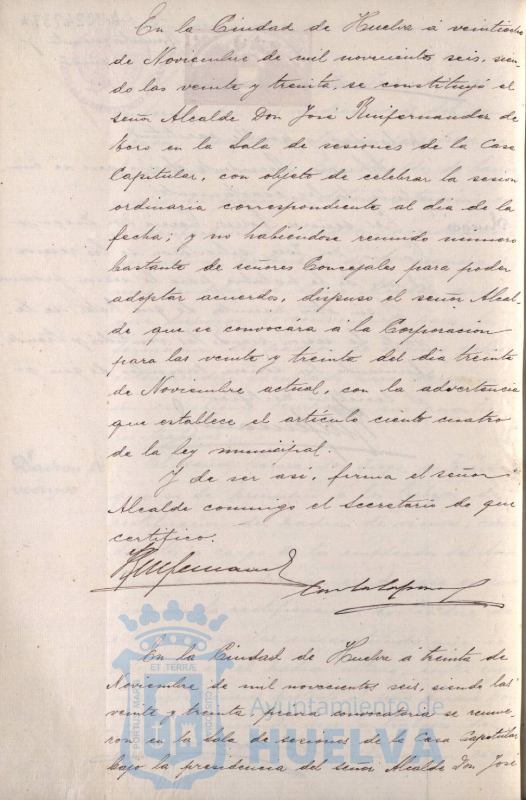 En la Ciudad de Huelva á veintiocho
de Noviembre de mil novecientos seis, sien-
do las veinte y treinta, se constituyó el
señor Alcalde Don José Ruifernandez de
Toro en la Sala de sesiones de la Casa
Capitular, con objeto de celebrar la sesion
ordinaria correspondiente al dia de la
fecha; y no habiéndose reunido número
bastante de señores Concejales para poder
adoptar acuerdos, dispuso el señor Alcal-
de que se convocára á la Corporacion
para las veinte y treinta del dia treinta
de Noviembre actual, con la advertencia
que establece el artículo ciento cuatro
de la ley municipal.
Y de ser así, firma el señor
Alcalde conmigo el Secretario de que
certifico.
En la Ciudad de Huelva á treinta de
Noviembre de mil novecientos seis, siendo las
veinte y treinta, previa convocatoria se reunie-
ron en la Sala de sesiones de la Casa Capitular
bajo la presidencia del señor Alcalde Don José
Ayuntamiento de
HUELVA